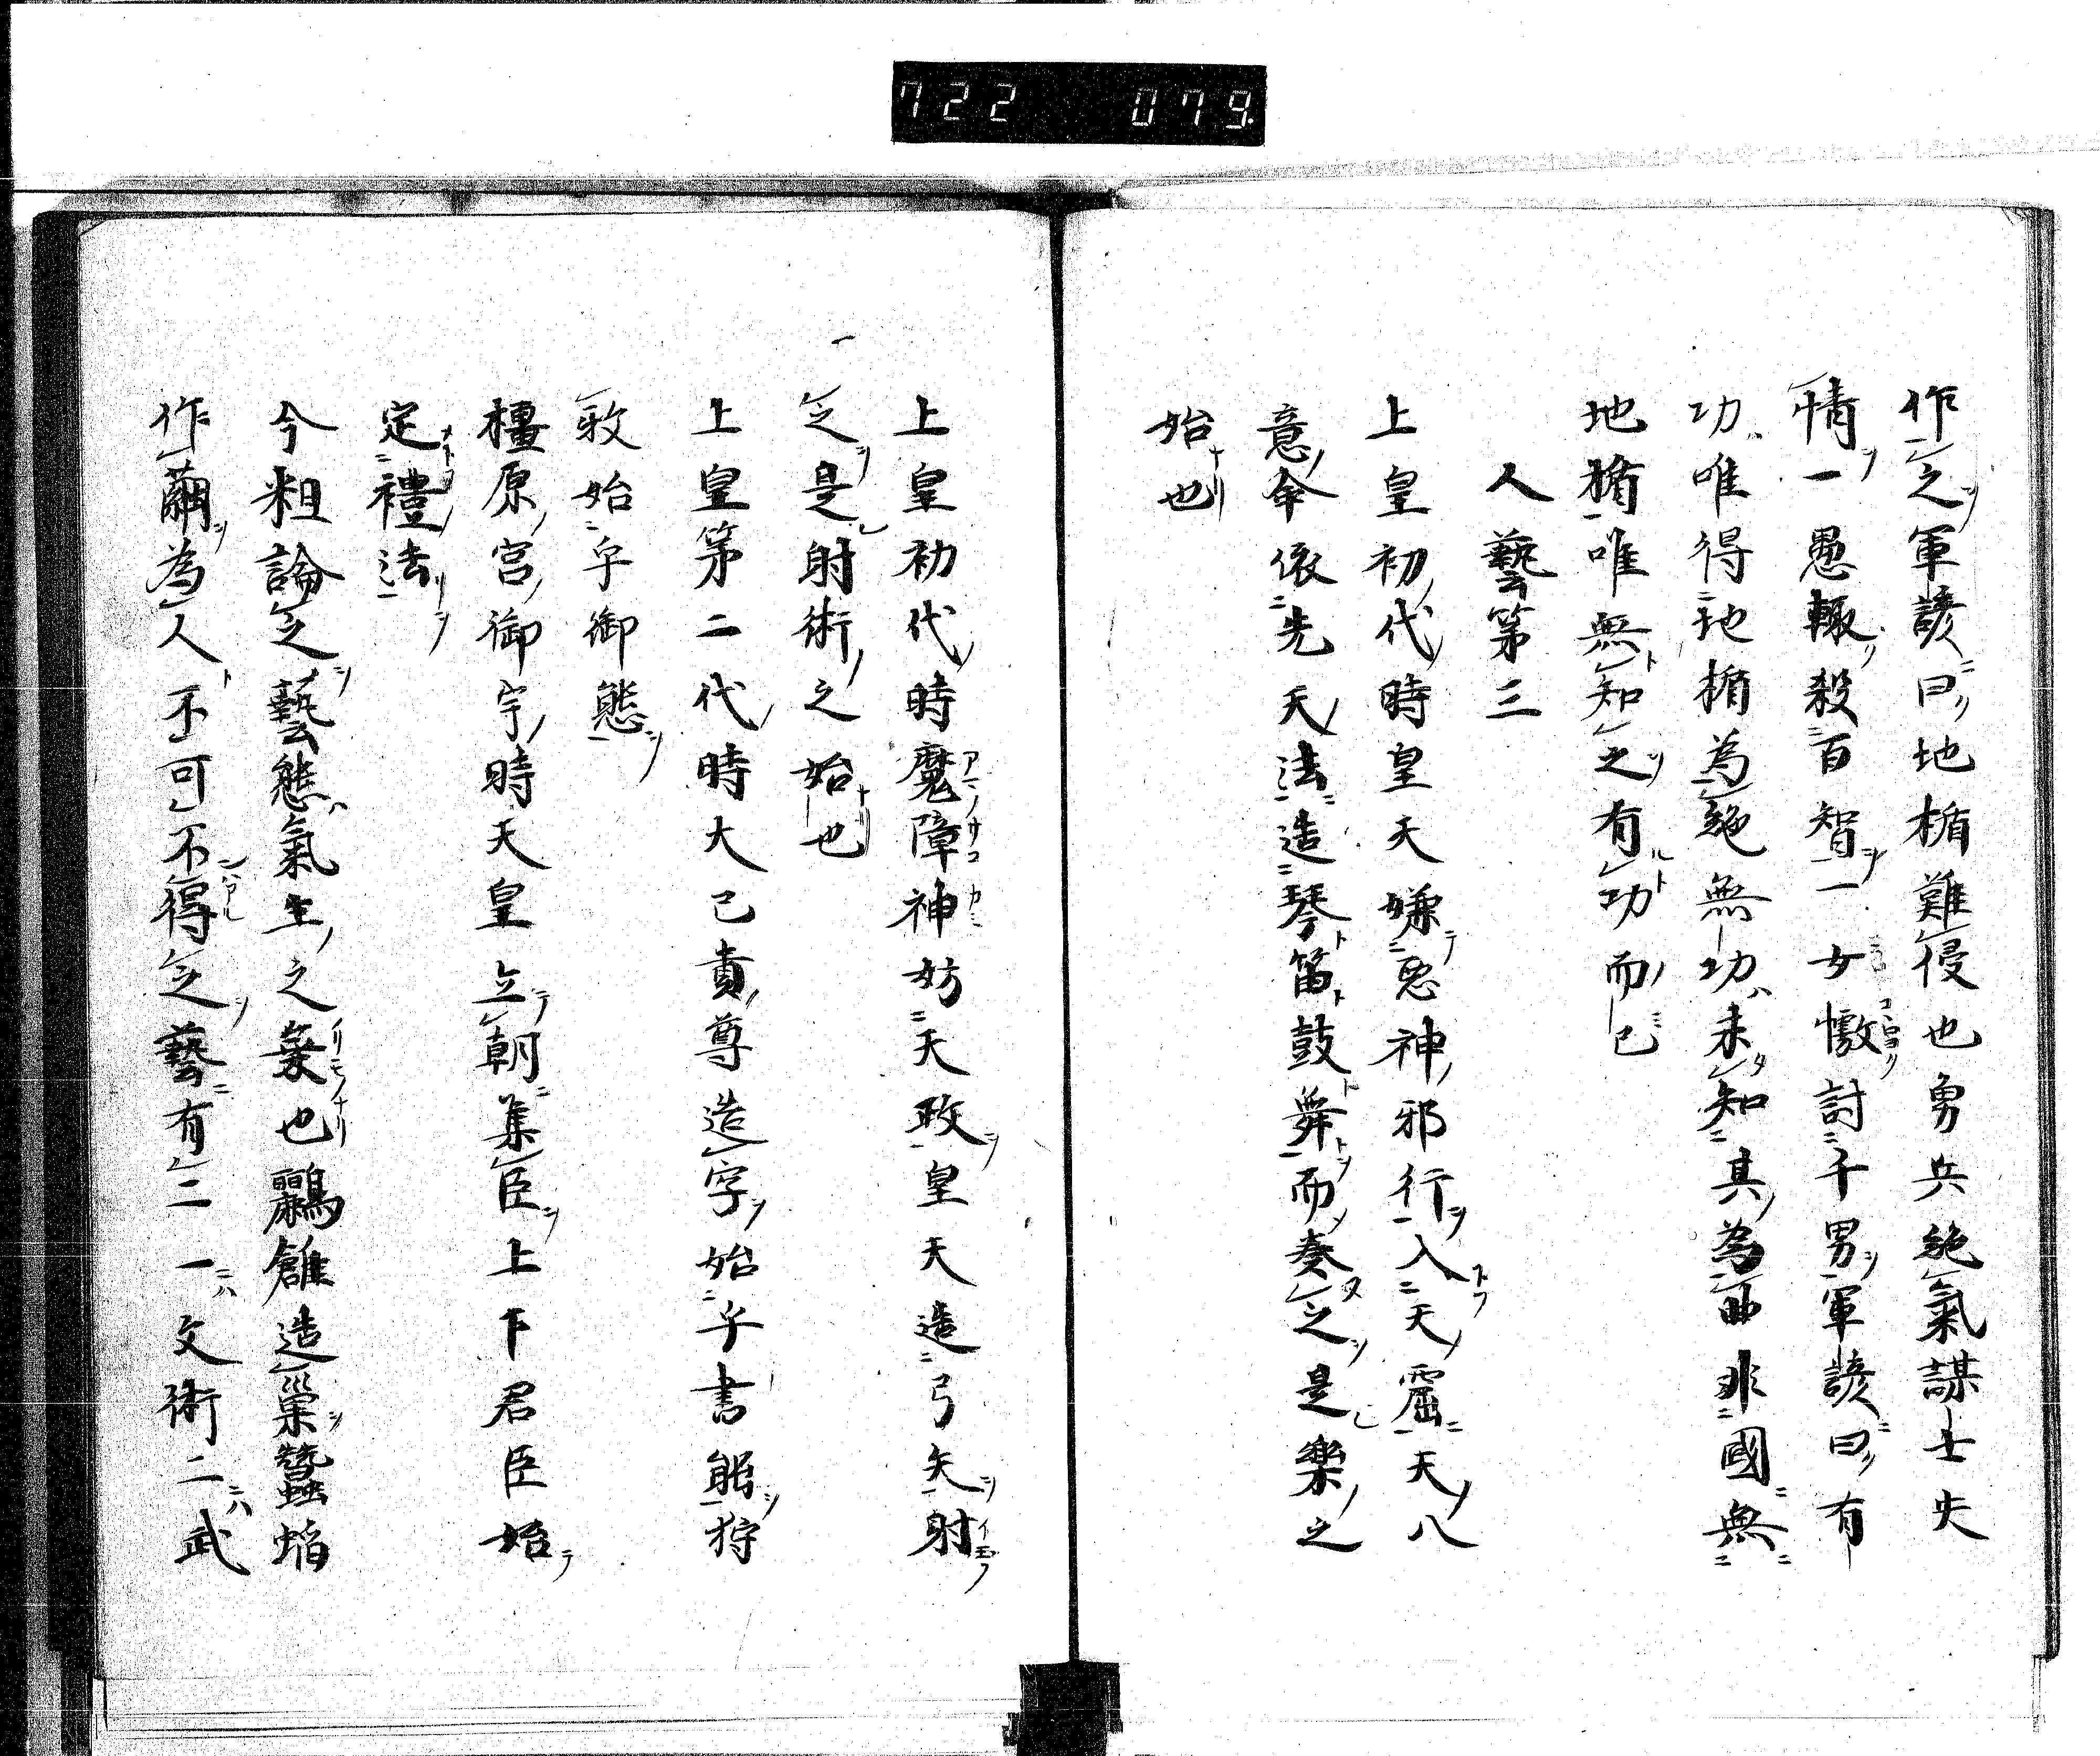 722 079.
作之軍諺曰地楯難侵也勇兵絶氣謀士失
情一愚輙殺百智一女憿討千男軍諺曰有
功唯得地楯為絶無功未知其為曲非國無
地楯唯無知之有功而已
人藝第三
上皇初代時皇天嫌惡神邪行入天窟天八
意命依先天法造琴笛鼓舞而奏之是樂之
始也
上皇初代時魔障神妨天政皇天造弓矢射
之是射術之始也
上皇第二代時大己貴尊造字始乎書能狩
敉始乎御態
橿原宮御宇時天皇立朝集臣上下君臣始
定禮法
今粗論之藝態氣生之彙也鸝雛造巢蠶蜭
作繭為人不可不得之藝有二一文術二武